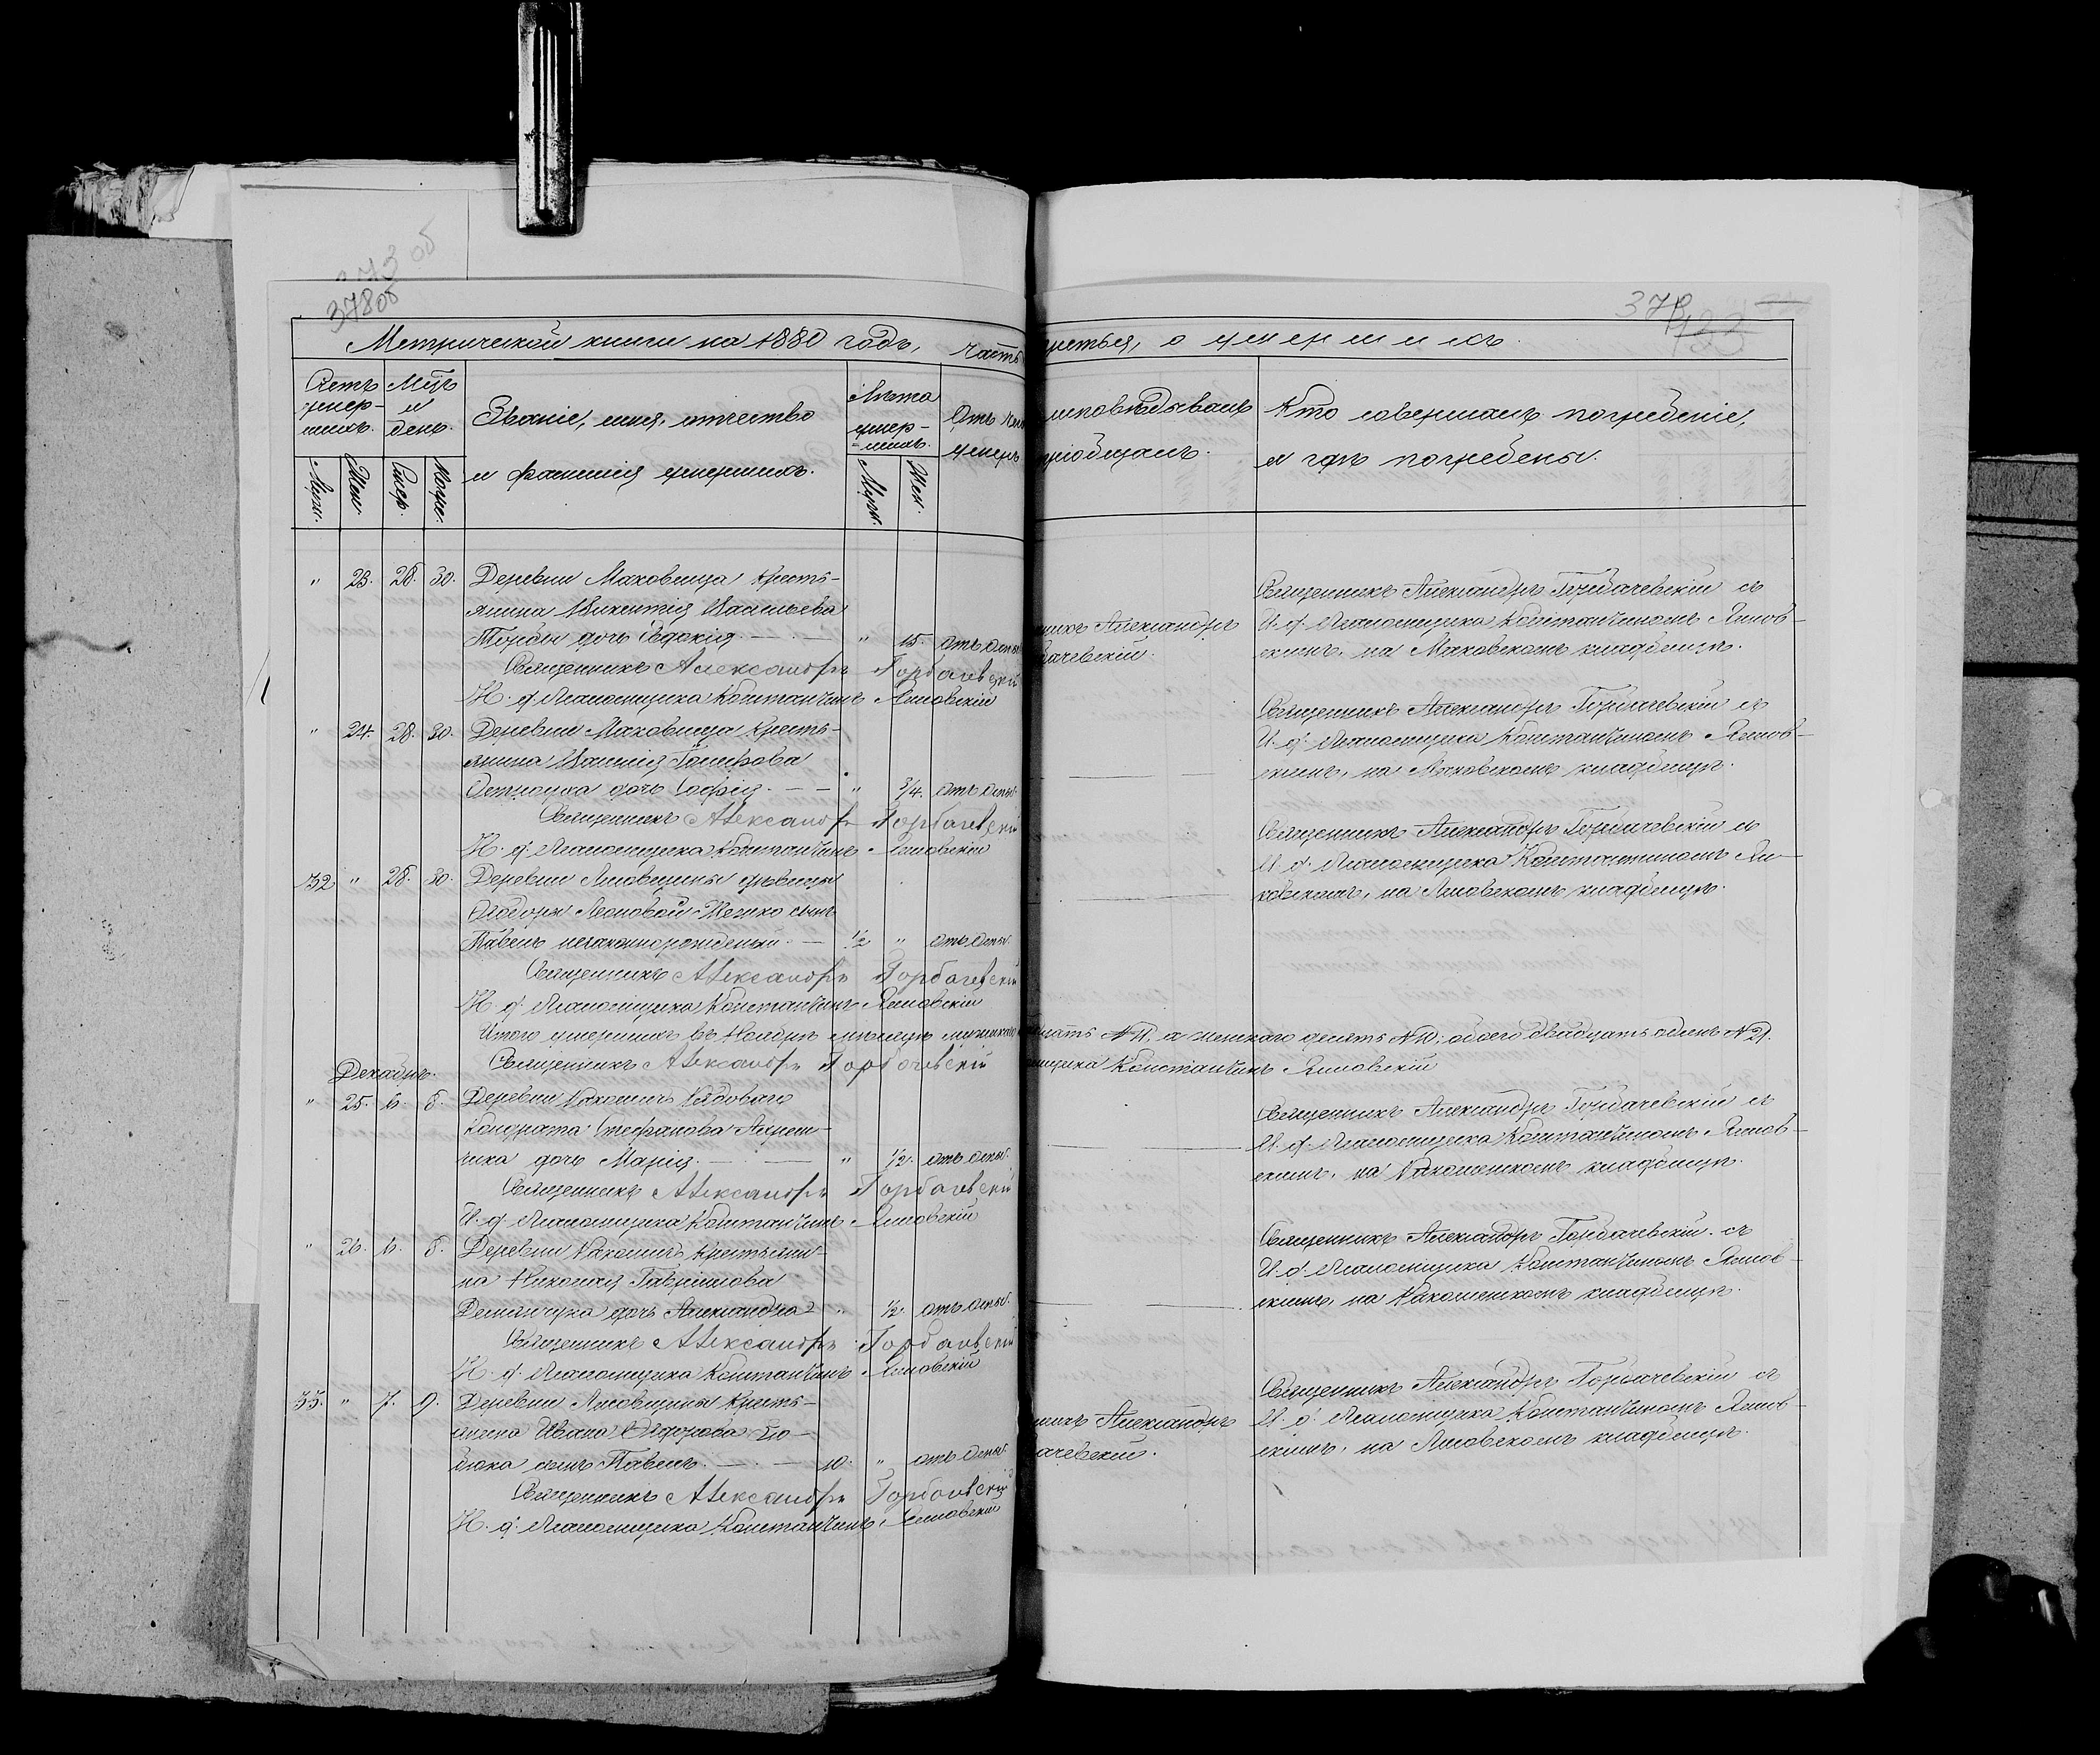 373 об
378об
378
123
Метрической книги на 1880 годъ, часть третья, о умершихъ.
Счетъ умер-шихъ.
Мцъ и день.
Званіе, имя, отчество и фамилія умершихъ.
Лѣта умер-шихъ.
Отъ чего умеръ
исповѣдывалъ
пріобщалъ.
Кто совершалъ погребеніе,
и гдѣ погребены.
Муж.
Жен.
Смер.
Погре.
Муж.
Жен.
" 23. 28. 30. Деревни Маковища Кресть-
янина Викентія Васильева
дочь Евдокія. — " 15. отъ оспы
Священникъ Александръ Горбачевскій
И. д. Псаломщика Константинъ Ямовскій
никъ Александръ
бачевскій.
Священникъ Александръ Горбачевскій съ
И. д. Псаломщика Константиномъ Ямов-
скимъ, на Маковскомъ кладбищѣ.
" 24. 28. 30. Деревни Маковища Кресть-
янина Василія
дочь Софія. — — " 3/4. отъ оспы.
Священникъ Александръ Горбачевскій
И. д. Псаломщика Константинъ Ямовскій
Священникъ Александръ Горбачевскій съ
И. д. Псаломщика Константиномъ Ямов-
скимъ, на Маковскомъ кладбищѣ.
32 " 28. 30. Деревни девицы
Ѳеодоры Леоновой сынъ
Павелъ незаконнорожденный. — 1/2 " отъ оспы.
Священникъ Александръ Горбачевскій
И. д. Псаломщика Константинъ Ямовскій
Священникъ Александръ Горбачевскій съ
И. д. Псаломщика Константиномъ Ям-
ковскомъ, на кладбищѣ.
Итого умершихъ въ Ноябрѣ мѣсяцѣ мужскаго надцать №11, а женскаго десять №10; обоего двадцать одинъ №21.
Священникъ Александръ Горбачевскій
мщика Константинъ Ямовскій
Декабрь.
" 25. 6. 8. Деревни Рядоваго
Кондрата Стефанова
чика дочь Марія. — " 1/2. отъ оспы.
Священникъ Александръ Горбачевскій
И. д. Псаломщика Константинъ Ямовскій
Священникъ Александръ Горбачевскій съ
И. д. Псаломщика Константиномъ Ямов-
скимъ, на кладбищѣ.
" 26. 6. 8. Деревни Крестьяни-
на Николая Гавріилова
Демянчука дочь Александра " 1/2. отъ оспы.
Священникъ Александръ Горбачевскій
И. д. Псаломщика Константинъ Ямовскій
Священникъ Александръ Горбачевскій съ
И. д. Псаломщика Константиномъ Ямов-
скимъ, на кладбищѣ.
33. " 7. 9. Деревни Кресть-
янина Ивана
сынъ Павелъ. — 10. " отъ оспы.
Священникъ Александръ Горбачевскій
И. д. Псаломщика Константинъ Ямовскій
никъ Александръ
ачевскій.
Священникъ Александръ Горбачевскій съ
И. д. Псаломщика Константиномъ Ямов-
скимъ, на кладбищѣ.